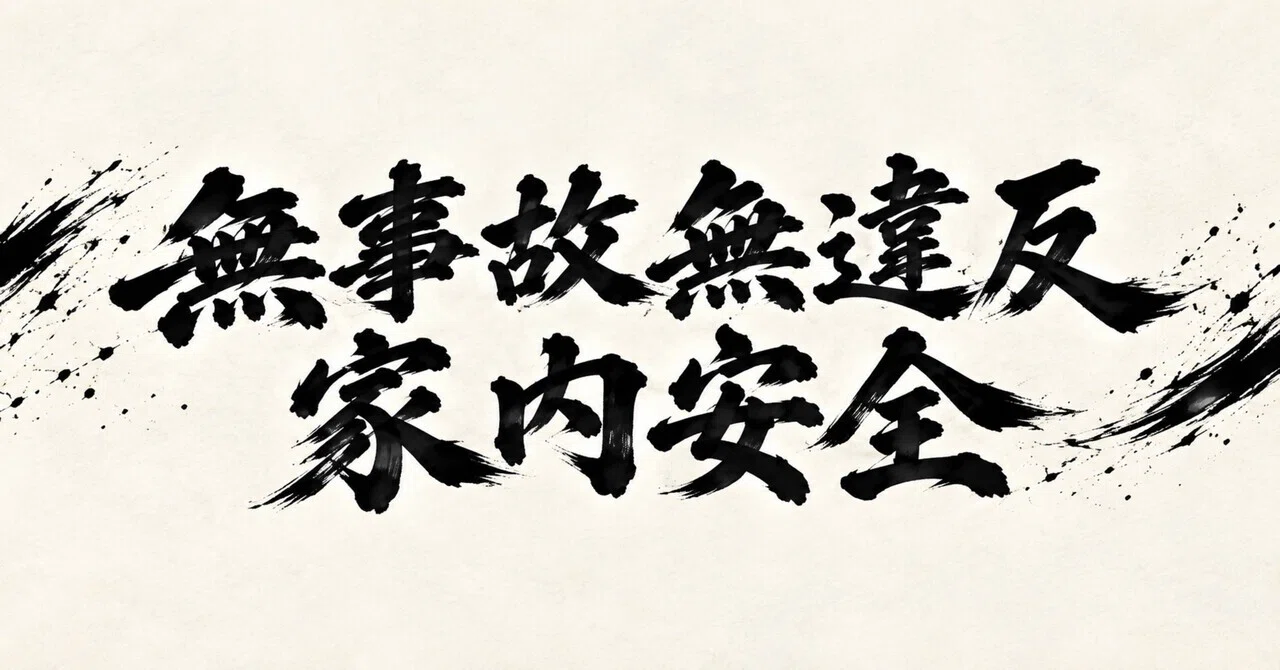 無事故無違反
家内安全